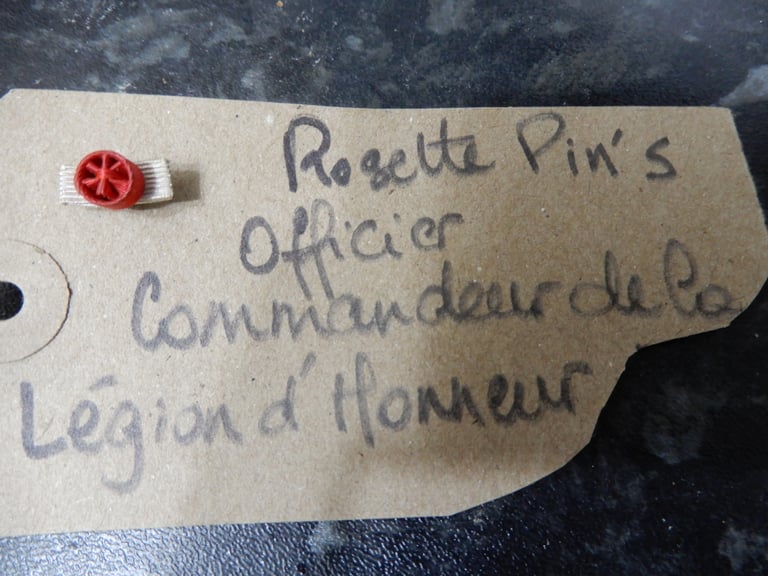 Rosette Pin's
Officier
Commandeur de la
Légion d'Honneur